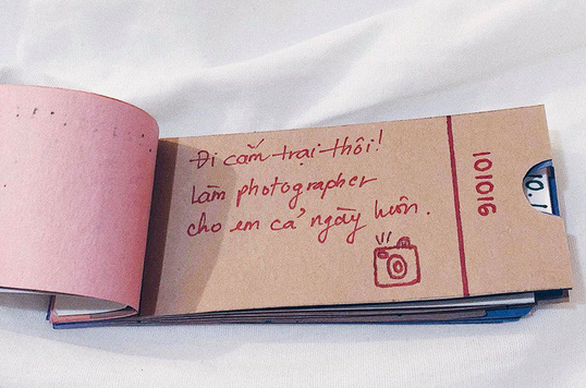 Đi cắm trại thôi!
Làm photographer
cho em cả ngày luôn.
101016
10.1